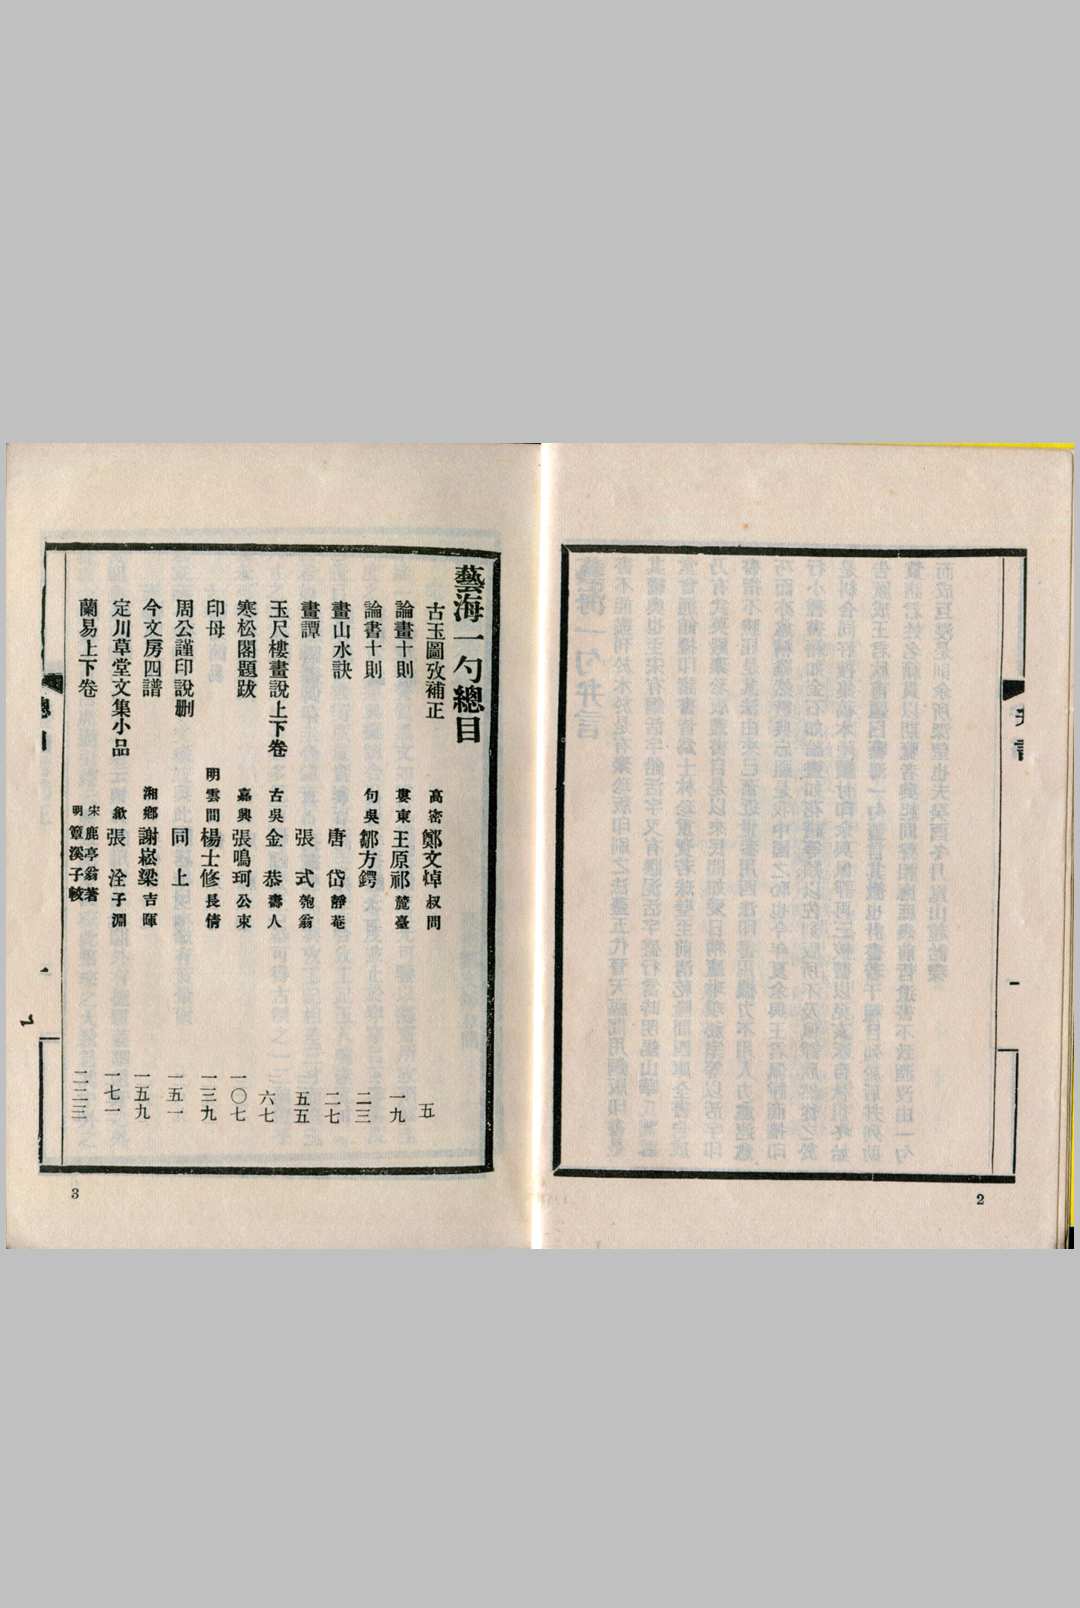 藝海一勺總目
古玉圖攷補正 高密 鄭文焯 叔問 五
論畫十則 婁東 王原祁 麓臺 一九
論書十則 句吳 鄒方鍔 二三
畫山水訣 唐岱 靜菴 二七
畫譚 張式 匏翁 五五
玉尺樓畫說上下卷 古吳 金恭 壽人 六七
寒松閣題跋 嘉興 張鳴珂 公束 一〇七
印母 明雲間 楊士修 長倩 一三九
周公謹印說刪 同上 一五一
今文房四譜 湘鄉 謝崧梁 吉暉 一五九
定川草堂文集小品 歙 張淦 子淵 一七一
蘭易上下卷 宋 鹿亭翁著 明 簟溪子較 二二三
總目
一
3
弁言
一
2